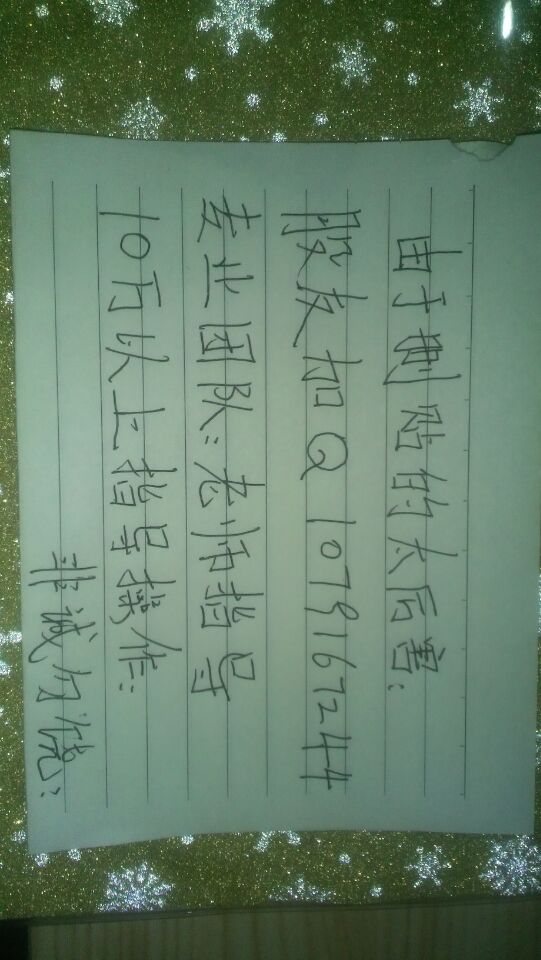 由于删贴的太厉害:
股友加Q 1079167244
专业团队:老师指导
10万以上指导操作:
非诚勿扰: